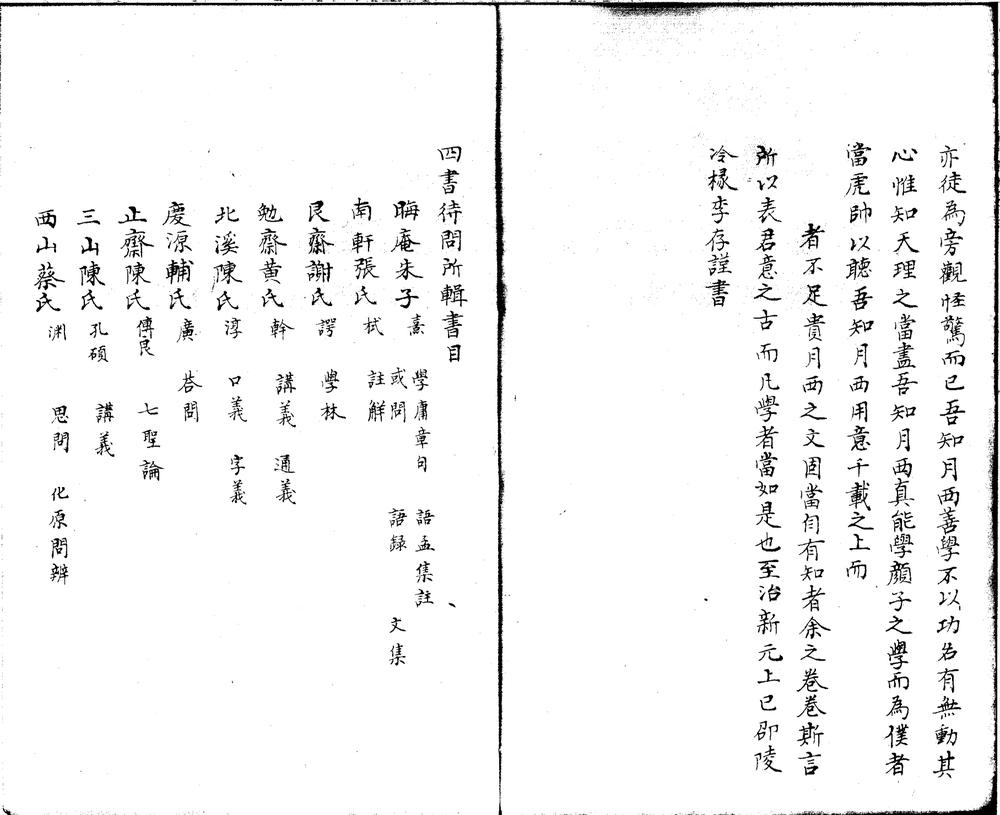 亦徒為旁觀怪驚而已吾知月西善學不以功名有無動其
心惟知天理之當盡吾知月西真能學顏子之學而為僕者
當虎帥以聽吾知月西用意千載之上而
者不足貴月西之文固當自有知者余之卷卷斯言
所以表君意之古而凡學者當如是也至治新元上巳邵陵
冷掾李存謹書
四書待問所輯書目
晦庵朱子 熹 學庸章句 語孟集註 或問 語録 文集
南軒張氏 栻 註解
艮齋謝氏 諤 學林
勉齋黄氏 幹 講義 通義
北溪陳氏 淳 口義 字義
慶源輔氏 廣 荅問
止齋陳氏 傅良 七聖論
三山陳氏 孔碩 講義
西山蔡氏 渊 思問 化原問辨